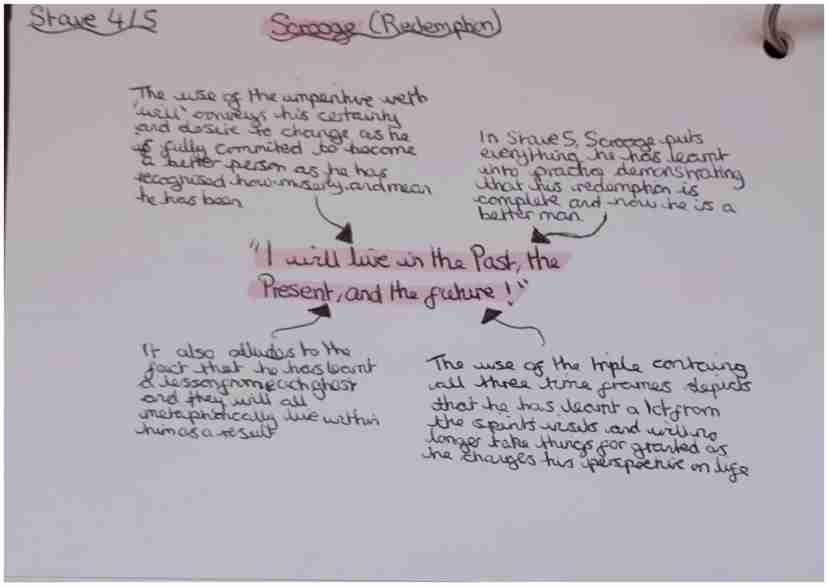 Stave 4/5
Scrooge (Redemption)
The use of the imperitive verb
'will' conveys his certainty
and desire to change as he
is fully commited to become
a better person as he has
recognised how misery and mean
he has been
In Stave 5, Scrooge puts
everything he has learnt
into practice demonstrating
that his redemption is
complete and now he is a
better man
"I will live in the Past, the
Present, and the future!"
It also alludes to the
fact that he has learnt
a lesson from each ghost
and they will all
metaphorically live within
him as a result
The use of the triple containg
all three time frames depicts
that he has learnt a lot from
the spirits visits and will no
longer take things for granted as
he changes his perspective on life